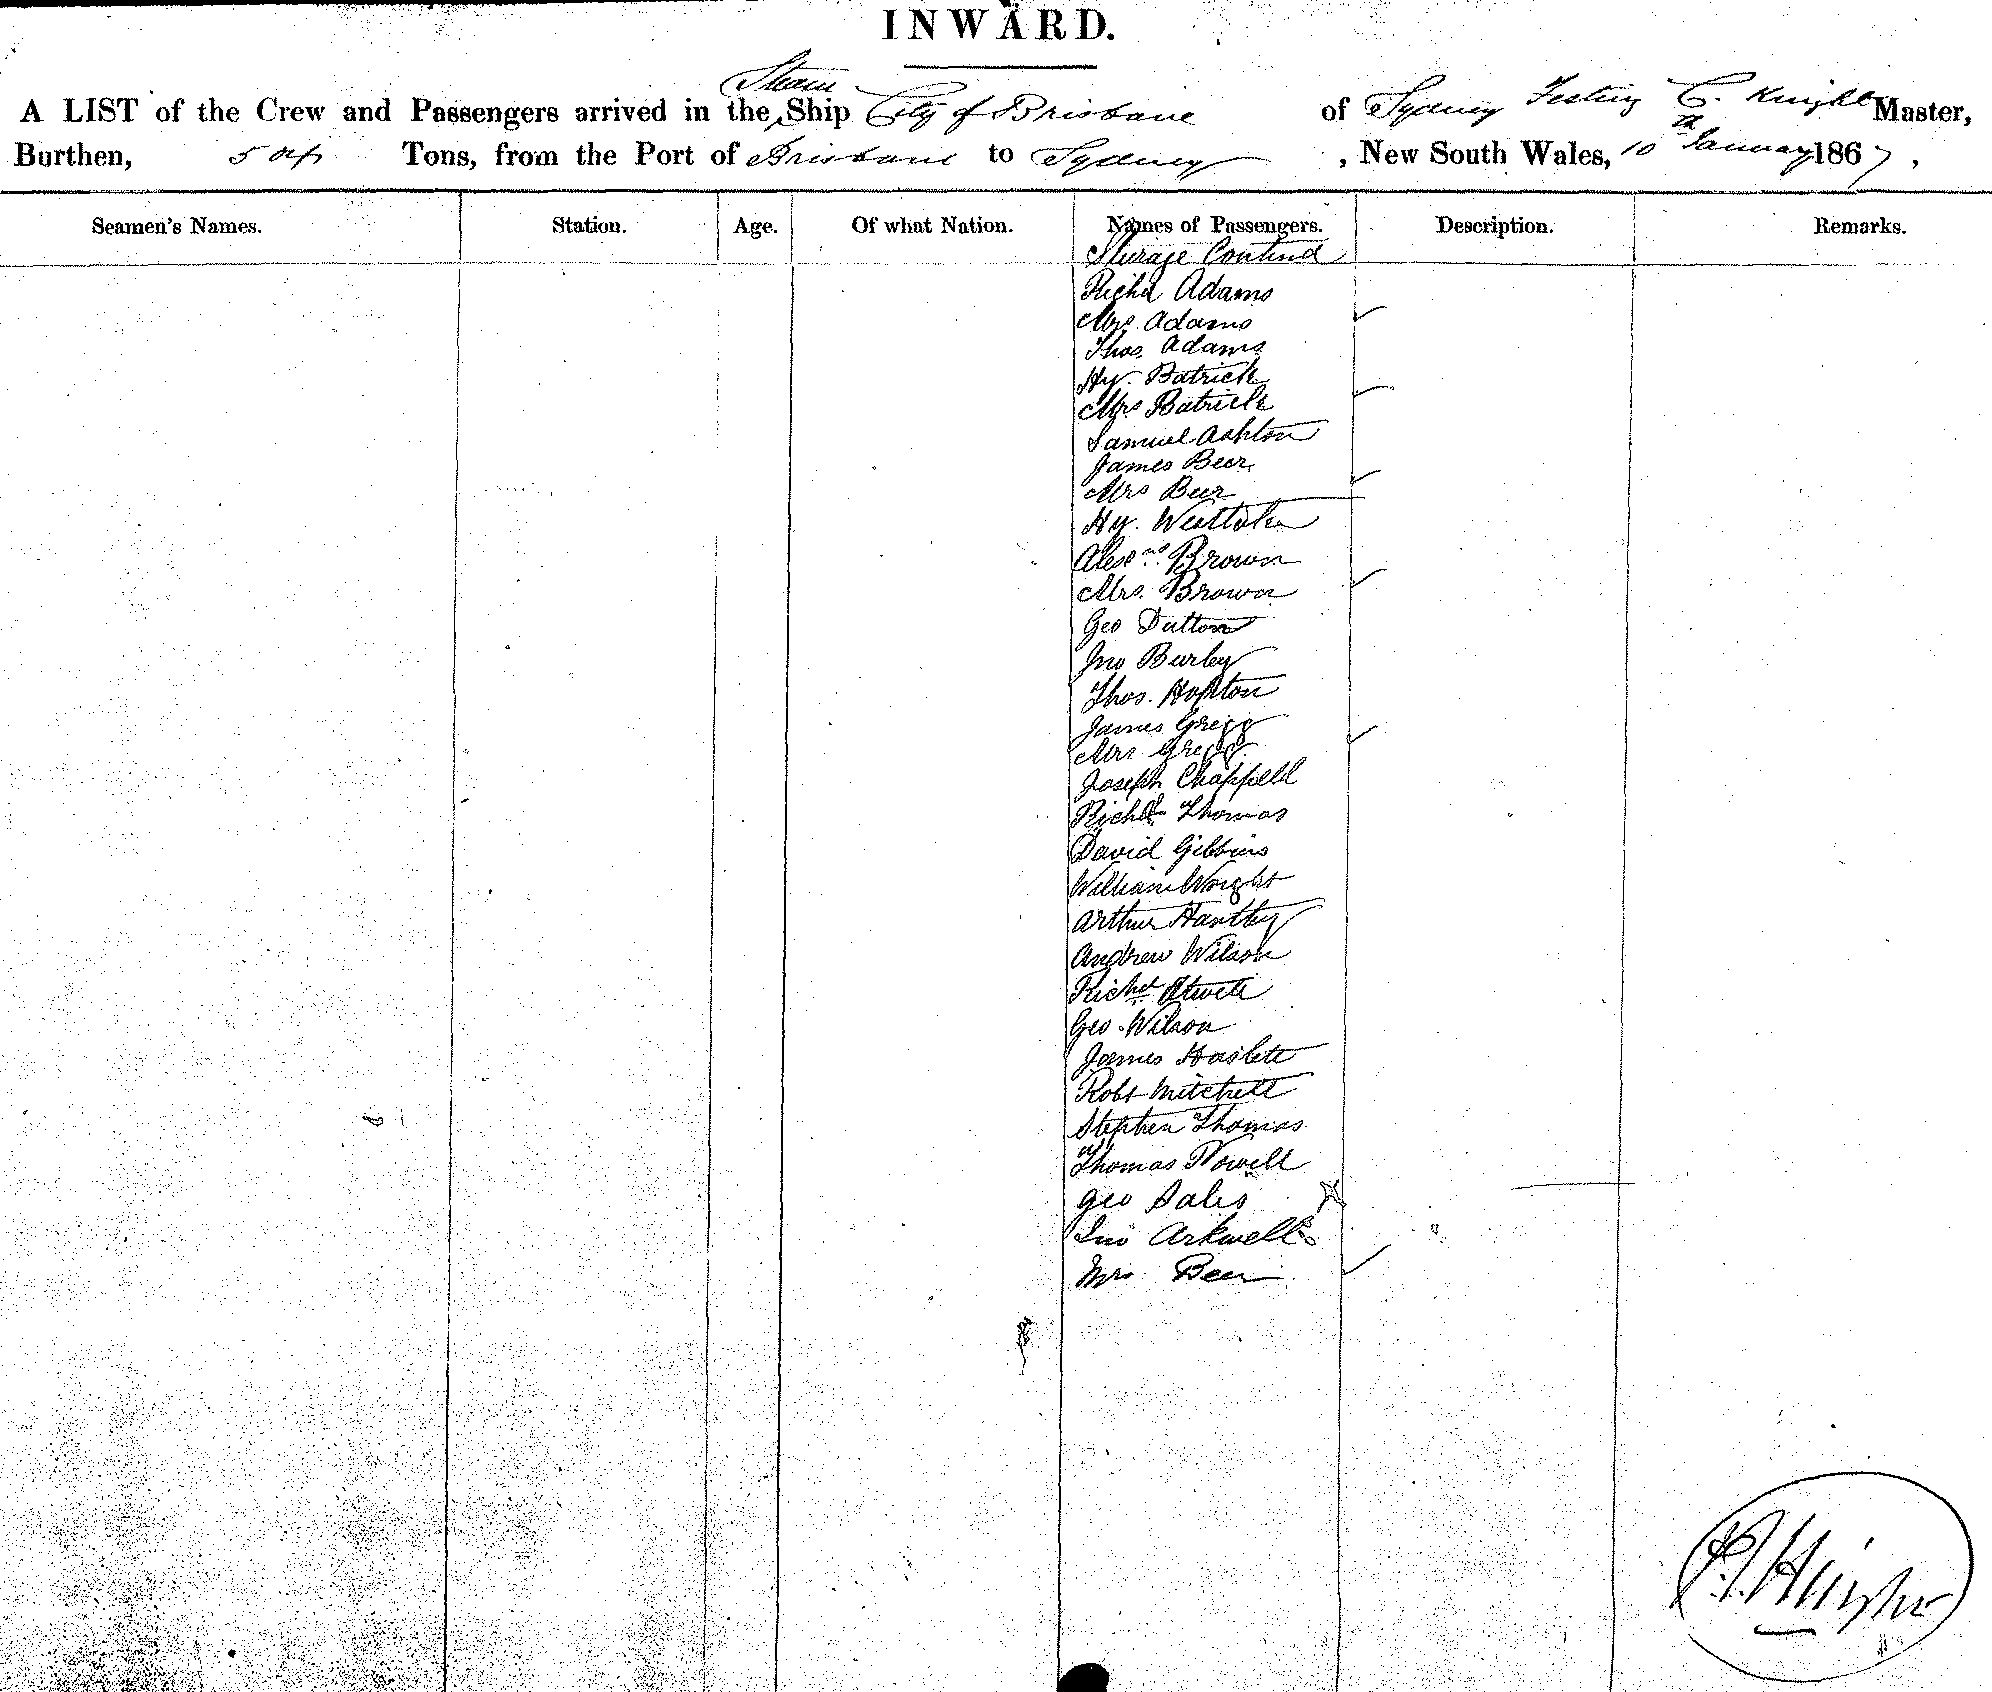 INWARD.
Steam
A LIST of the Crew and Passengers arrived in the Ship City of Brisbane of Sydney C. Knight Master,
Burthen, 504 Tons, from the Port of Brisbane to Sydney , New South Wales, 10th January 1867,
Seamen's Names. Station. Age. Of what Nation. Names of Passengers. Description. Remarks.
Sturage Contind
Richd Adams
Mrs. Adams
Thos. Adams
Hy. Batrick
Mrs Batrick
Samuel Ashton
James Beer
Mrs Beer
Hy.
Alexr. Brown
Mrs. Brown
Geo Dutton
Jno Burley
Thos. Hopton
James Gregg
Mrs Gregg
Joseph Chappell
Richd Thomas
David Gibbins
William Wright
Arthur Hantley
Andrew Wilson
Richd Atwell
Geo. Wilson
James Haslett
Robt Mitchell
Stephen Thomas
Thomas Nowell
Geo Sales
Jno Arkwell
Mrs Beer